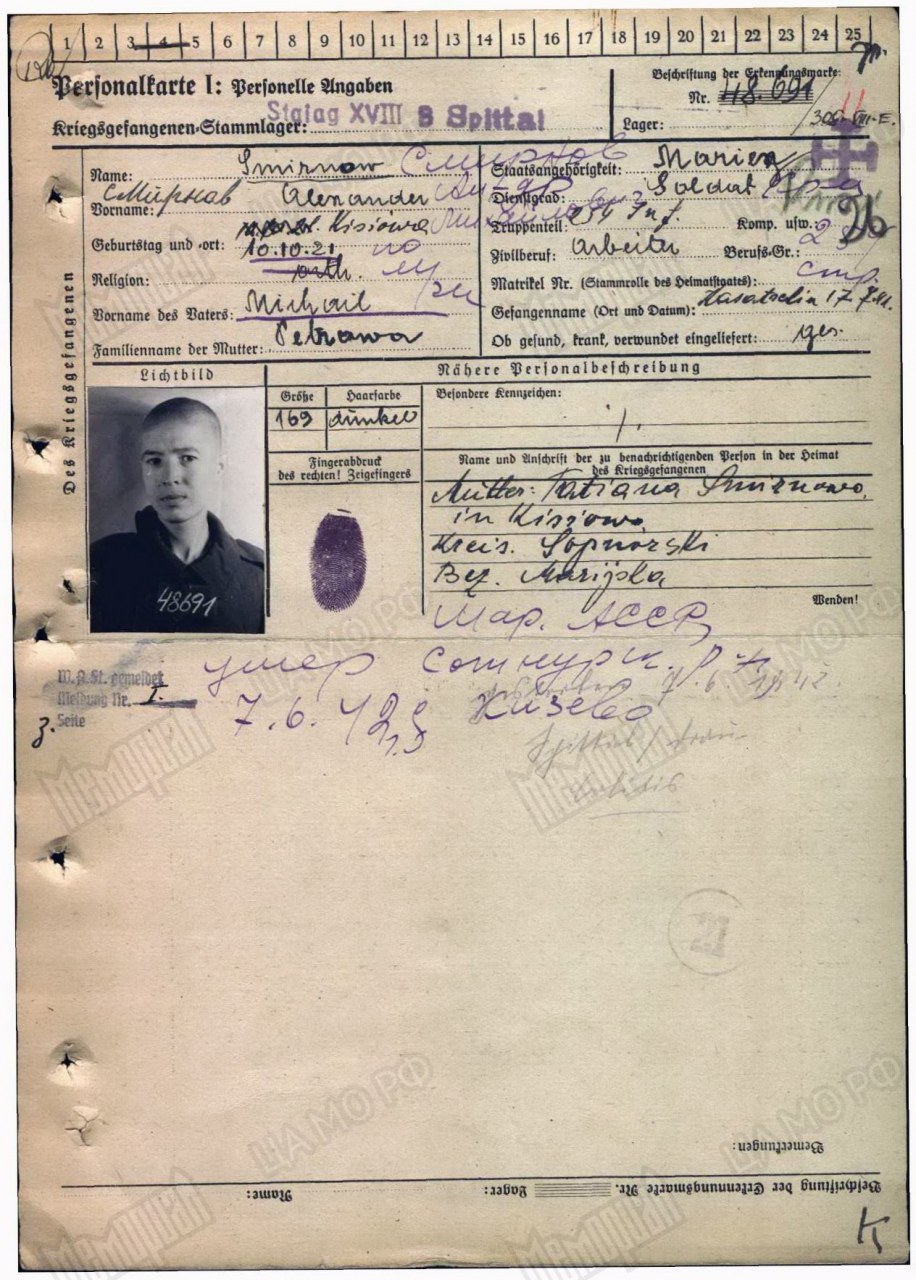 1 2 3 4 5 6 7 8 9 10 11 12 13 14 15 16 17 18 19 20 21 22 23 24 25
Personalkarte I: Personelle Angaben
Beschriftung der Erkennungsmarke:
Nr. 48.691
Kriegsgefangenen-Stammlager: Stalag XVIII B Spittal
Lager:
Des Kriegsgefangenen
Name: Smirnow Смирнов
Смирнов
Vorname: Alexander
Geburtstag und -ort: Kisiowa
10.10.21
Religion: orth.
Vorname des Vaters: Michail
Familienname der Mutter: Petrowa
Staatsangehörigkeit:
Dienstgrad: Soldat
Truppenteil: 234 Inf.
Komp. usw.:
26
Zivilberuf: Arbeiter
Berufs-Gr.:
Matrikel Nr. (Stammrolle des Heimatstaates):
Gefangenname (Ort und Datum): 17.7.41.
Ob gesund, krank, verwundet eingeliefert: ges.
Lichtbild
48691
Nähere Personalbeschreibung
Größe
Haarfarbe
169
dunkel
Besondere Kennzeichen:
Fingerabdruck
des rechten! Zeigefingers
Name und Anschrift der zu benachrichtigenden Person in der Heimat
des Kriegsgefangenen
Mutter: Tatiana Smirnowa
in Kisiowo
Kreis.
Bez. Marijska
Wenden!
Мар. АССР
W.A.St. gemeldet
Meldung Nr. I.
Seite
умер
7.6.42
Кизево
7.6.1942
Spittal / Drau
21
Bemerkungen:
Beschriftung der Erkennungsmarke Nr.
Lager:
Name:
K
Мемориал
ЦАМО РФ